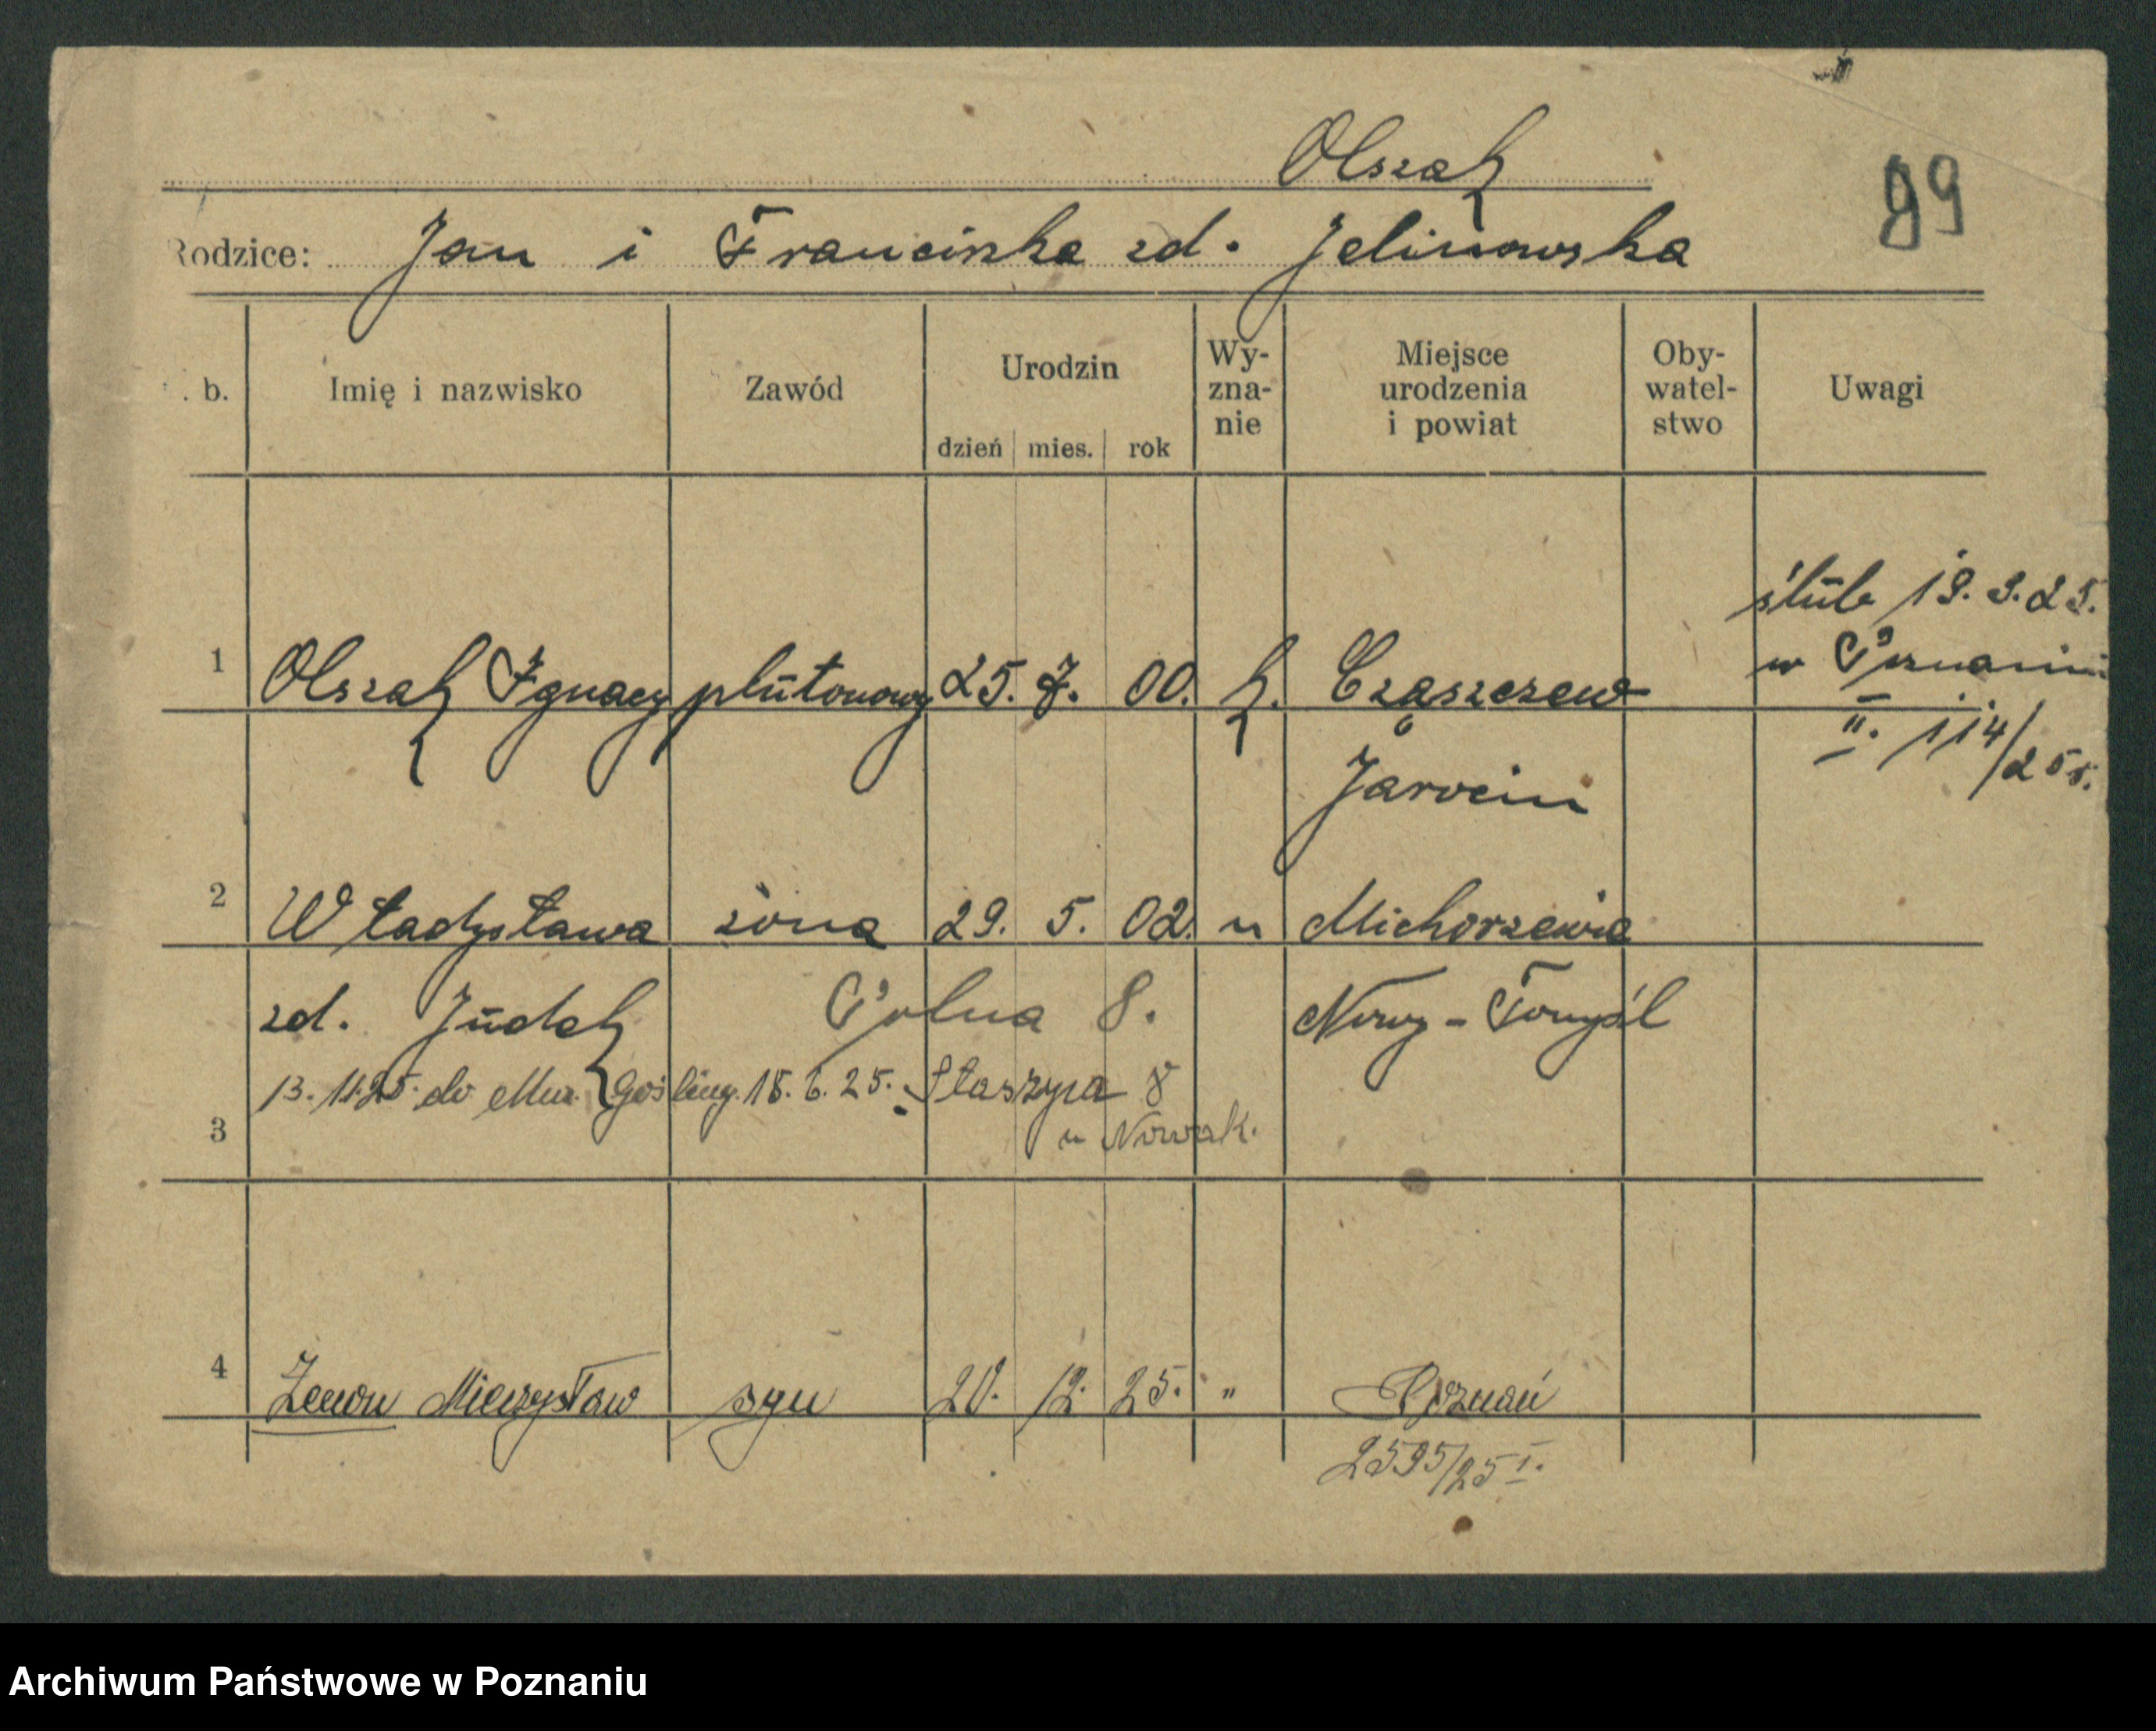 Olszak
89
Rodzice: Jan i Franciszka zd. Jelinowska
. b. Imię i nazwisko Zawód Urodzin dzień mies. rok Wy-zna-nie Miejsce urodzenia i powiat Oby-watel-stwo Uwagi
ślub 19. 3. 25.
w Poznaniu
II. 114/25 r.
1 Olszak Ignacy plutonowy 25. 7. 00. k. Cząszczew
Jarocin
2 Władysława żona 29. 5. 02. " Michorzewie
zd. Judek Polna 8. Nowy-Tomyśl
13. 11. 25. do Mur. Gośling. 18. 6. 25. Staszyca 8
u Nowak.
3
4 Zenon Mieczysław syn 20. 12. 25. " Poznań
2595/25 I.
Archiwum Państwowe w Poznaniu